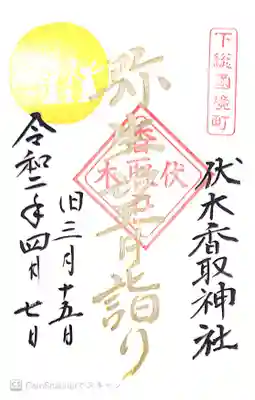 下総国境町
伏木香取神社
弥
月詣り
伏木
香
旧三月十五日
令和二年四月七日
CS CamScannerでスキャン